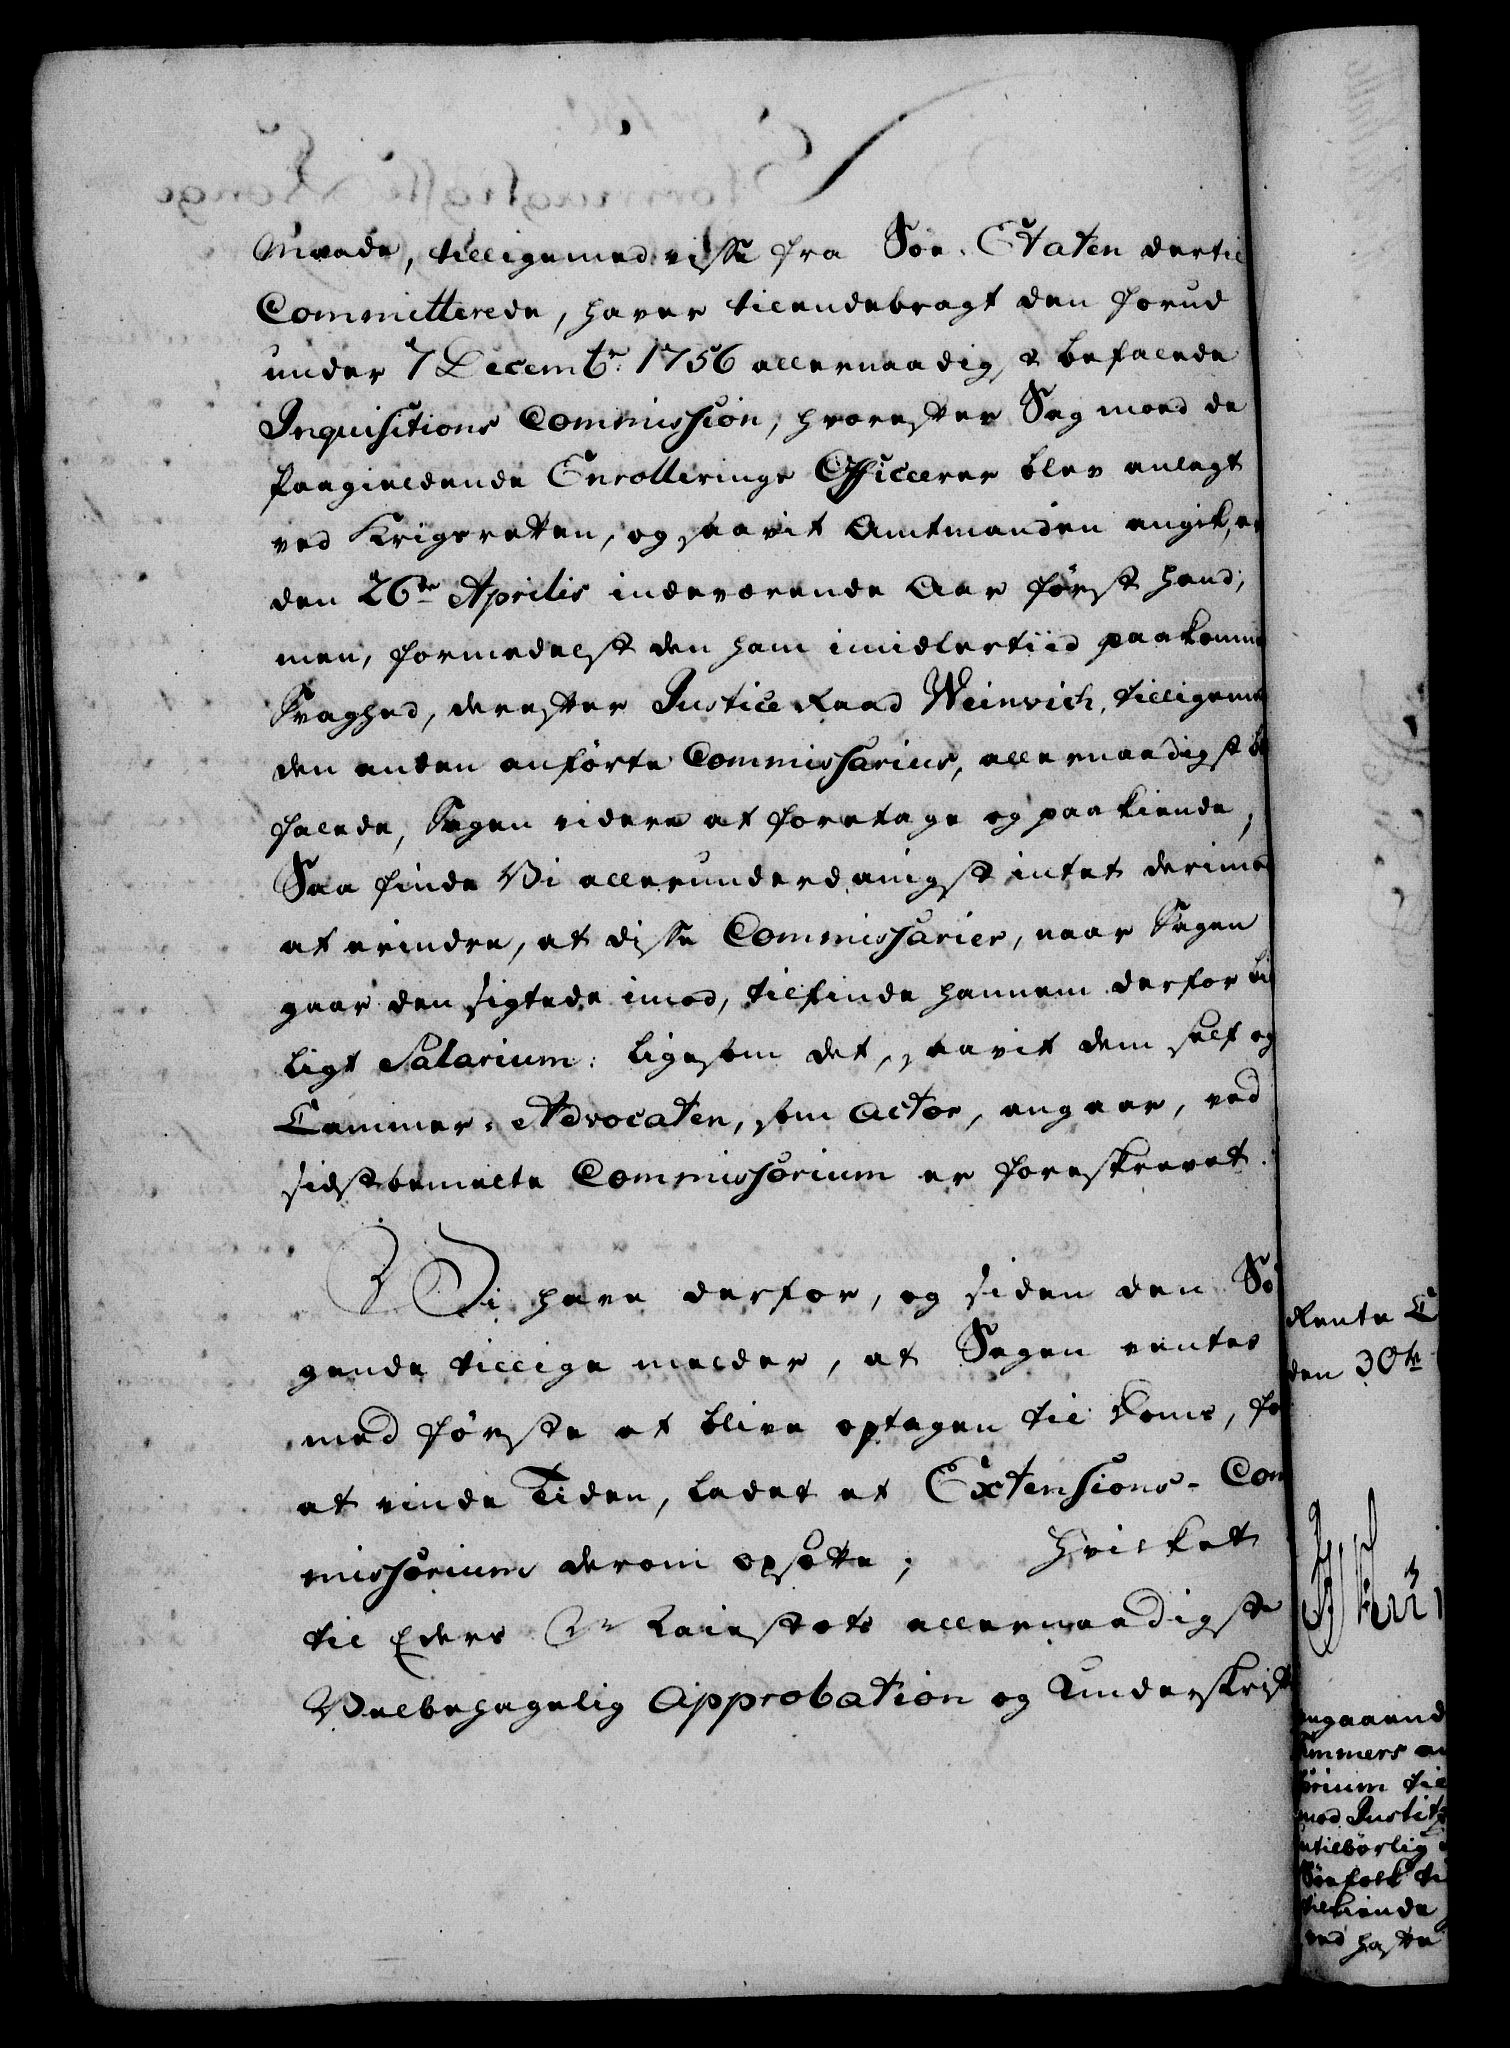 Maade, tilligemed visse fra Söe-Etaten dertil
Committerede, haver tilendebragt den forud
under 7 Decembr: 1756 allernaadigst befalede
Inquisitions Commission, hvorefter Sag mod de
paagieldende Enrollerings Officerer blev anlagt
ved Krigsretten, og saavit Amtmanden angik, er
den 26de Aprilis indeværende Aar først hand,
men, formedelst den ham imidlertiid paakomne
Svaghed, derefter Justice Raad Weinvich, tilligemed
den anden anførte Commissarius, allernaadigst be
falede, Sagen videre at foretage og paakiende;
Saa finde Vi allerunderdanigst intet derimod
at erindre, at disse Commissarier, naar Sagen
gaar den sigtede imod, tilfinde hannem derfor bil
ligt Salarium: ligesom det, saavit dem self og
Cammer-Advocaten, som Actor, angaar, ved
sidstbemelte Commissorium er foreskrevet.
Vi have derfor, og siden den Sø
gende tillige melder, at Sagen ventes
med første at blive optagen til Doms, for
at vinde Tiden, ladet et Extensions-Com
missorium derom opsætte; Hvilket
til Eders Maiestæts allernaadigste
Velbehagelig Approbation og Underskrift
Rente C
den 30te
angaaend
ammers a
orium til
mod Justit
utilbørlig
Søefolk ti
tilkiende
ved hafte